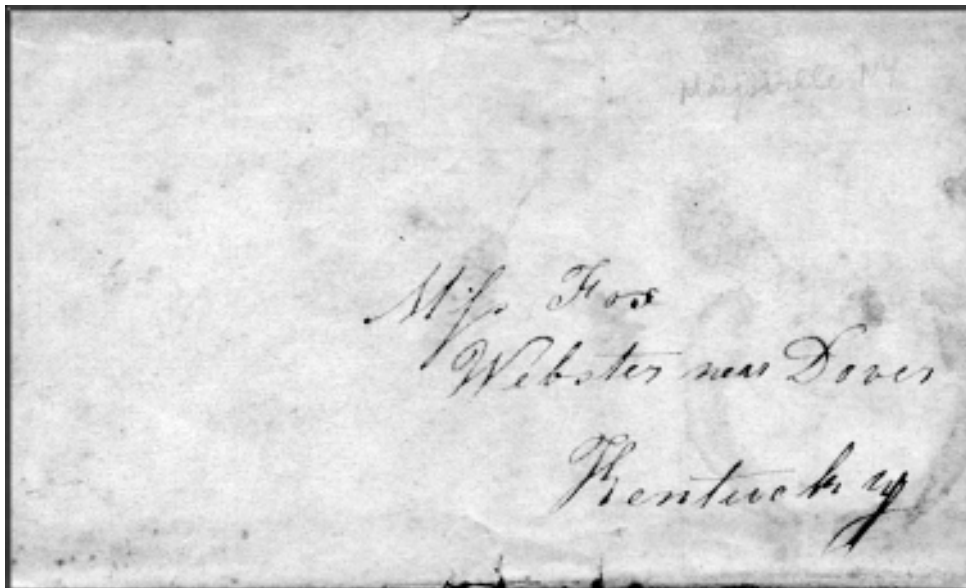 Maysville KY
Miss Fox
Webster near Dover
Kentucky